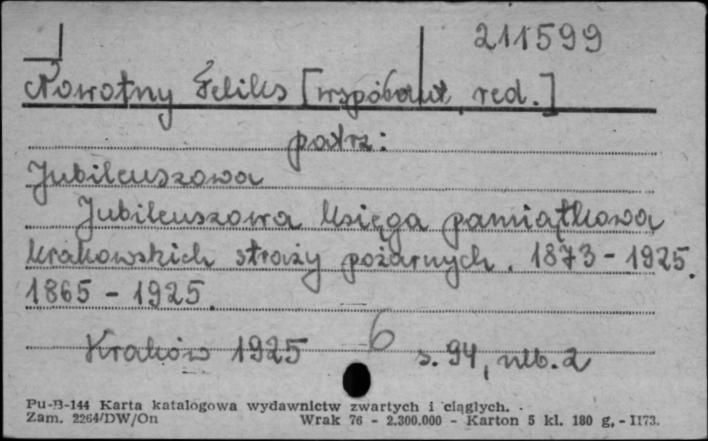 211599
Nowotny Feliks [współaut., red.]
patrz:
Jubileuszowa
Jubileuszowa księga pamiątkowa
krakowskich straży pożarnych. 1873 - 1925.
1865 - 1925.
Kraków 1925 6 s. 94, nlb. 2
Pu-B-144 Karta katalogowa wydawnictw zwartych i ciągłych.
Zam. 2264/DW/On Wrak 76 - 2.300.000 - Karton 5 kl. 180 g, - II73.